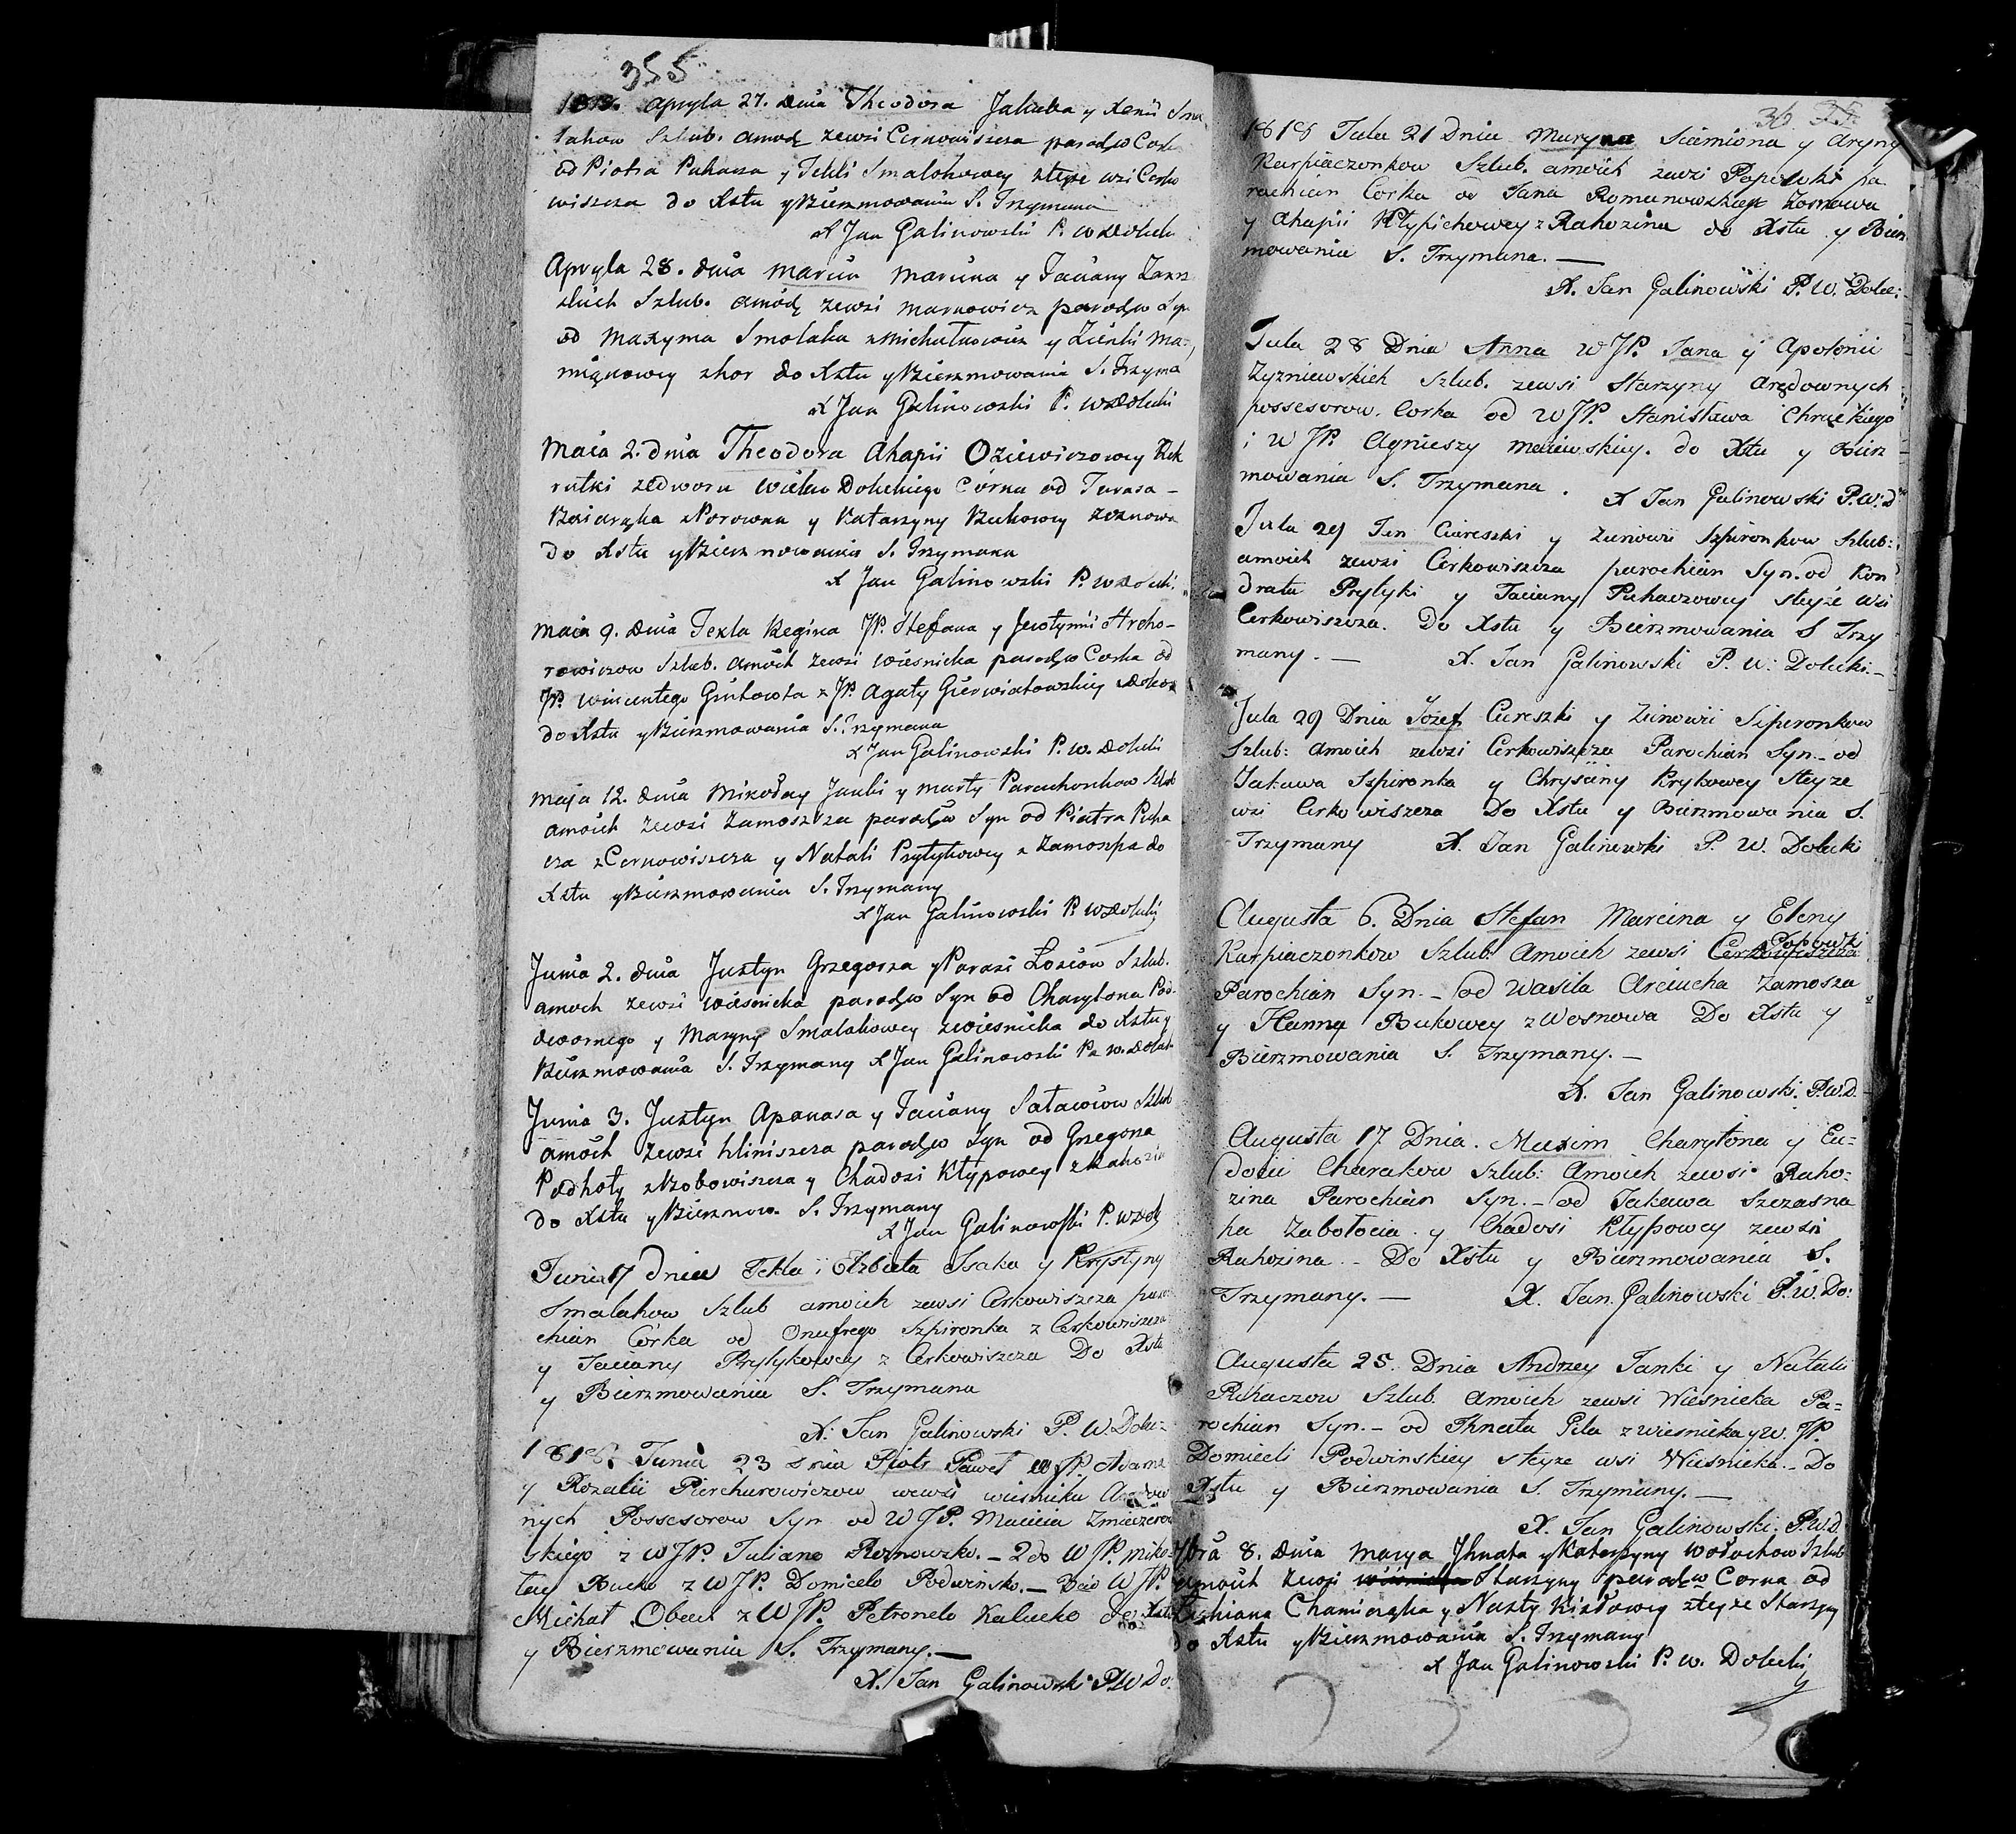 355
1818. Apryla 27. dnia Theodora Jakuba y Xenii Sma
lakow Szlub. amodz zewsi Cerkowiszcza parodz Cork
od Piotra Puhacza y Tekli Smalakowey zteyze wsi Cerko
wiszcza do Xstu y Bierzmowania S. Trzymana
X Jan Galinowski P. W Dolecki
Apryla 28. dnia Marcin Marcina y Taciany
Szlub. amodz zewsi Markowicz parodz Syn
od Maxyma Smolaka z Michalkowicz y Zienki
do Xstu y Bierzmowania S. Trzyma
X Jan Galinowski P. W Dolecki
Maia 2. dnia Theodora Ahapii Oziewiczowey Rek
rutki zedworu Wielko Doleckiego Corka od Tarasa
y Katarzyny Bukowey
do Xstu y Bierzmowania S. Trzymana
X Jan Galinowski P. W Dolecki
Maia 9. dnia Texla Regina JP. Stefana y Jewtymii Archo-
rowiczow Szlub. amoich zewsi Wiesnicka parodz Corka od
JP. Wincentego Gintowta z JP. Agaty Gierwiatowskiey
do Xstu y Bierzmowania S. Trzymana
X Jan Galinowski P. W. Dolecki
Maja 12. dnia Mikołay Janki y Marty Parachonkow Szlub
amoich zewsi Zamoszsza parodz Syn od Piotra Puha
cza z Cerkowiszcza y Natali Prytykowey z Zamoszsza do
Xstu y Bierzmowania S. Trzymany
X Jan Galinowski P. W Dolecki
Junia 2. dnia Justyn Grzegorza y Parasi Łosiow Szlub.
amoch zewsi Wiesnicka parodz Syn od Charytona Pod-
dwornego y Maryny Smalakowey zwiesnicka do Xstu y
Bierzmowania S. Trzymany X Jan Galinowski P. W. Dolecki
Junia 3. Justyn Apanasa y Taciany Sataciow Szlub
amoch zewsi Hliniszcza parodz Syn od Grzegorza
Podhoty z Bobowiszcza y Chadosi Kłypowey z Rahozin
do Xstu y Bierzmow. S. Trzymany
X Jan Galinowski P. W Dol
Junia 17 dnia Tekla i Elzbieta Isaka y Krystyny
Smalakow Szlub amoich zewsi Cerkowiszcza paro
chian Córka od Onufrego Szpironka z Cerkowiszcza
y Taciany Prytykowey z Cerkowiszcza Do Xstu
y Bierzmowania S. Trzymana
X. Jan Galinowski P. W. Dolec-
1818 Junia 23 dnia Piotr Paweł WJP Adama
y Rozalii Pierchurowiczow wewsi wiesniku Arędow
nych Possesorow Syn od WJP. Macieia Zmieczerow
skiego z WJP. Juliano Roznowsko. - 2do WJP. Miko
łay Bucko z WJP. Domicelo Podwinsko. - 3cio WJP.
Michał Obech z WJP. Petronelo Kalucko do Xstu
y Bierzmowania S. Trzymany. -
X. Jan Galinowski P.W Do.
36 35.
1818 Jula 21 Dnia Maryna Siemiona y Aryny
Karpiaczonkow Szlub. amoich zewsi Popowki pa
rochian Corka od Jana Romanowskiego
y Ahapii Kłypichowey z Rahozina do Xstu y Bierz
mowania S. Trzymana. -
X. Jan Galinowski P. W. Dolec:
Jula 28 Dnia Anna WJP. Jana y Apolonii
Zyzniewskich Szlub. zewsi Starzyny Arędownych
possesorow. Corka od WJP. Stanisława Chruckiego
i WJP. Agnieszy Maiewskiey. do Xstu y Bierz
mowania S. Trzymana. X Jan Galinowski P.W.d
Jula 29 Jan Ciereszki y Zienowii Szpironkow Szlub:
amoich zewsi Cerkowiszcza parochian Syn. od Kon
drata Prytyki y Taciany Puhaczowey steyże wsi
Cerkowiszcza. Do Xstu y Bierzmowania S Trzy
many. - X. Jan Galinowski P. W: Dolecki. -
Jula 29 Dnia Jozef Cereszki y Zienowii Siperonkow
Szlub: amoich zewsi Cerkowiszcza Parochian Syn. - od
Jakuwa Szpironka y Chrysciny Krykowey steyze
wsi Cerkowiszcza Do Xstu y Bierzmowania S.
Trzymany X. Jan Galinowski P. W. Dolecki
Augusta 6. Dnia Stefan Marcina y Eleny
Karpiaczonkow Szlub. Amoich zewsi Cerkowiszcza Popowki
Parochian Syn. - od Wasila Arciucha Zamosza
y Hanny Bukowey z Wosnowa Do Xstu y
Bierzmowania S. Trzymany. -
X. Jan Galinowski. P.W.D.
Augusta 17 Dnia. Maxim Charytona y Eu=
docii Charakow Szlub: Amoich zewsi Raho=
zina Parochian Syn. - od Jakuwa Szczasna
ha Zabołocia y Chadosi Kłypowey zewsi
Rahozina. - Do Xstu y Bierzmowania S.
Trzymany. - X. Jan Galinowski P. W. Do:
Augusta 25. Dnia Andrzey Janki y Natalii
Puhaczow Szlub. Amoich zewsi Wiesnicka Pa=
rochian Syn. - od Ihnata Pila z wiesnicka y W. JP.
Domiceli Podwinskiey steyze wsi Wiesnicka. - Do
Xstu y Bierzmowania S. Trzymany. -
X. Jan Galinowski. P.W.d.
7bra 8. dnia Marya Ihnata y Katarzyny Wołochow Szlub
amoich zewsi wiesnicka Starzyny parodz Corka od
y Nasty Kisłowey zteyze Starzyny
do Xstu y Bierzmowania S. Trzymany
X Jan Galinowski P. W. Dolecki